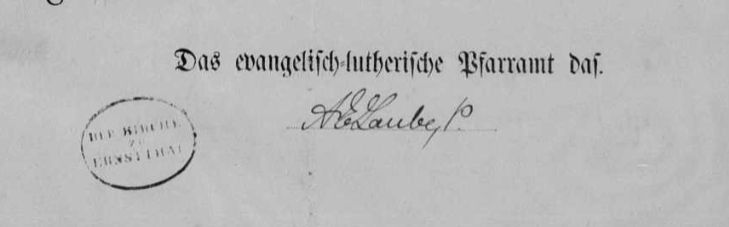 Das evangelisch-lutherische Pfarramt das.
AELaube, P.
DER KIRCHE
ZU
ERNSTTHAL